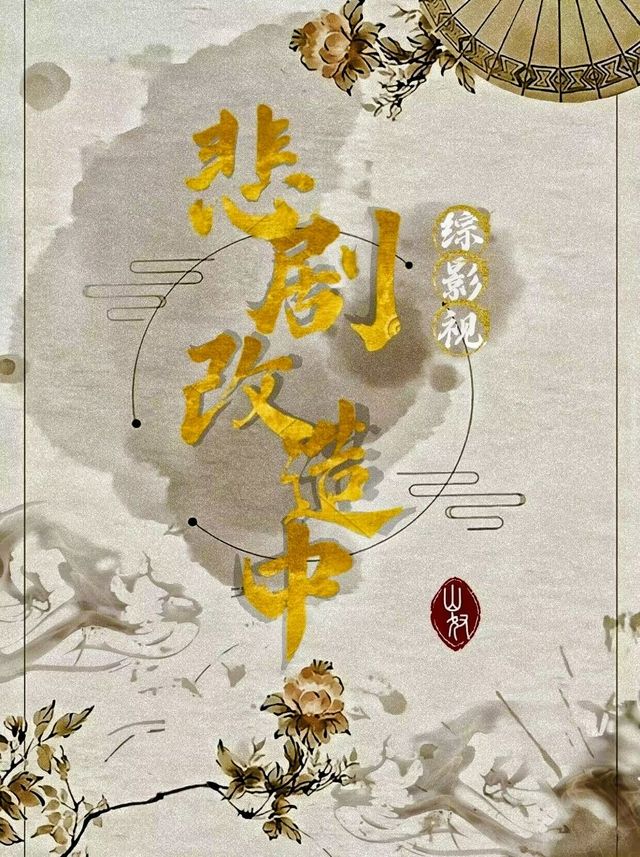 悲剧改造中
综影视
山奴